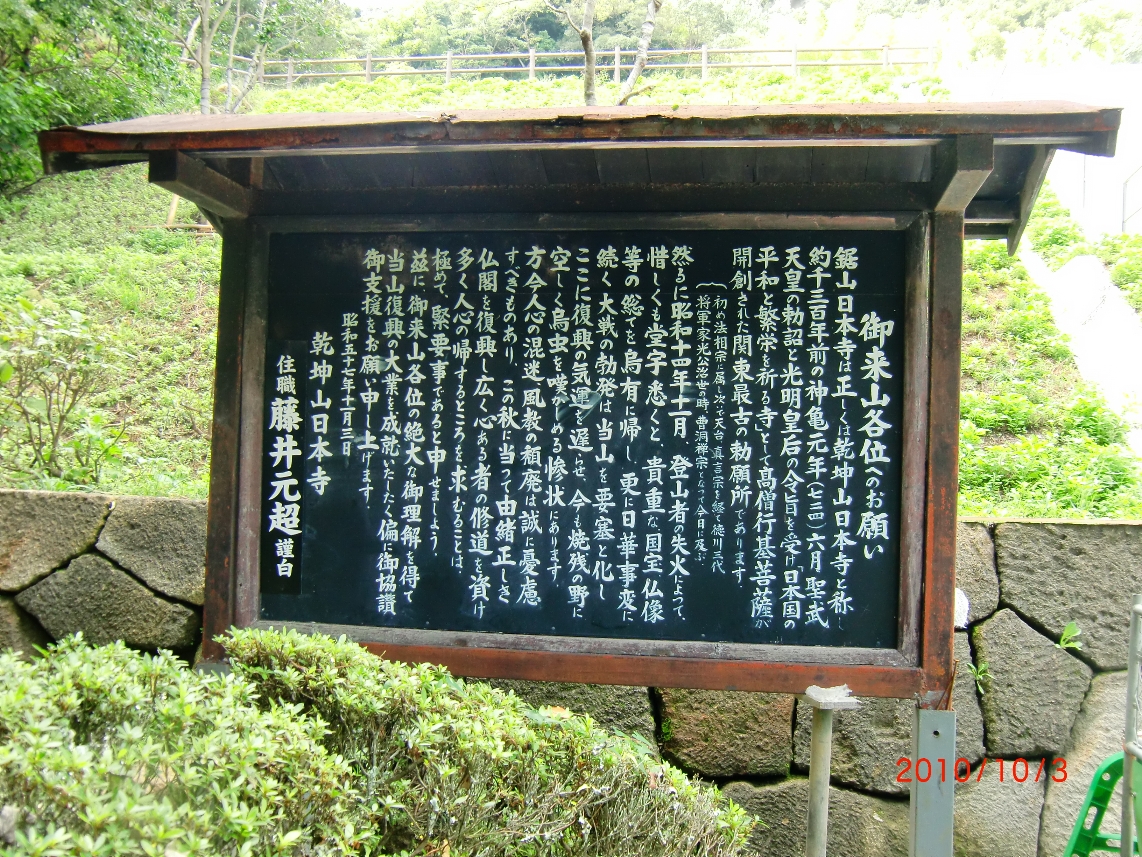 御来山各位へのお願い
鋸山日本寺は正しくは乾坤山日本寺と称し
約千三百年前の神亀元年(七二四)六月聖武
天皇の勅詔と光明皇后の令旨を受け「日本国の
平和と繁栄を祈る寺として高僧行基菩薩が
開創された関東最古の勅願所であります
(初め法相宗に属し次で天台真言宗を経て徳川三代
将軍家光公治世の時、曹洞禅宗となって今日に及ぶ
然るに昭和十四年十一月、登山者の失火によって、
惜しくも堂宇悉くと、貴重な国宝仏像
等の総てを烏有に帰し、更に日華事変に
続く大戦の勃発は当山を要塞と化し
ここに復興の気運を遅らせ、今も焼残の野に
空しく烏虫を嘆かしめる惨状にあります
方今人心の混迷風教の頽廃は誠に憂慮
すべきものあり、この秋に当って由緒正しき
仏閣を復興し広く心ある者の修道を資け
多く人心の帰するところを求むることは、
極めて、緊要事であると申せましよう
茲に、御来山各位の絶大な御理解を得て
当山復興の大業を成就いたしたく偏に御協讃
御支援をお願い申し上げます.
昭和五七年十一月三日
乾坤山日本寺
住職 藤井元超 謹白
2010/10/3